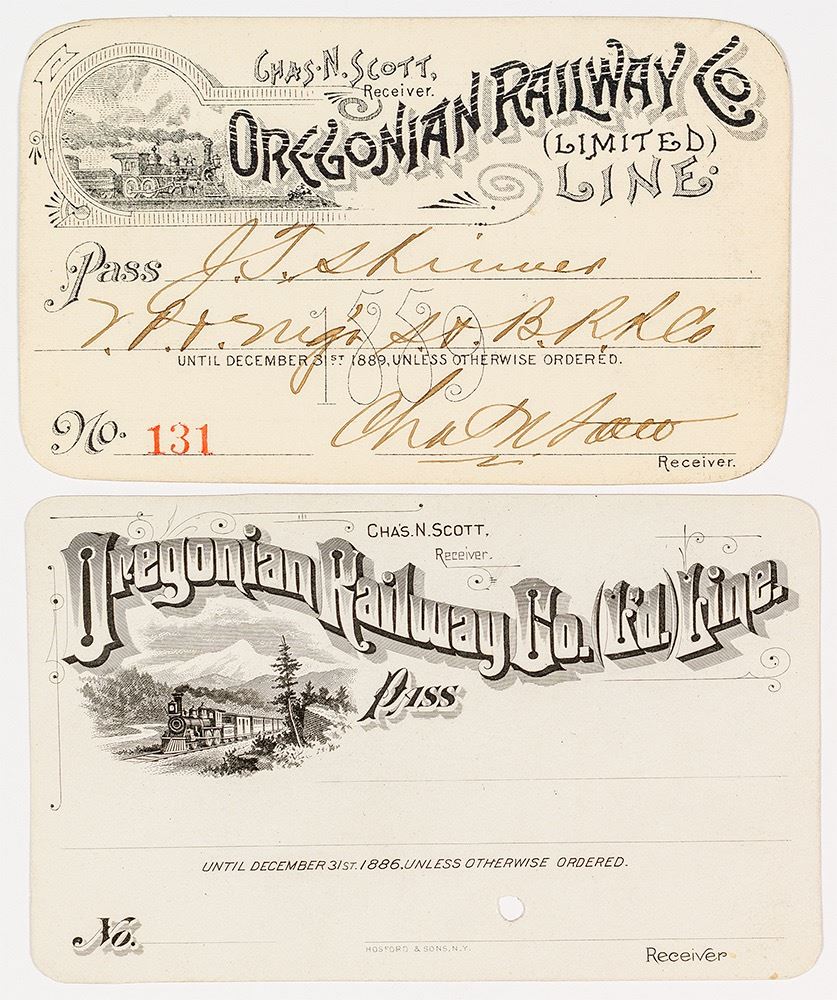 CHAS. N. SCOTT,
Receiver.
OREGONIAN RAILWAY CO
(LIMITED)
LINE.
Pass J. T. Skinner
V. P. & Mig'r S. & B. R. R. Co
1889
UNTIL DECEMBER 31ST 1889, UNLESS OTHERWISE ORDERED.
No. 131
Chas N Scott
Receiver.
CHA'S. N. SCOTT,
Receiver.
Oregonian Railway Co. (L'd.) Line.
Pass
UNTIL DECEMBER 31ST. 1886. UNLESS OTHERWISE ORDERED.
No.
HOSFORD & SONS, N.Y.
Receiver